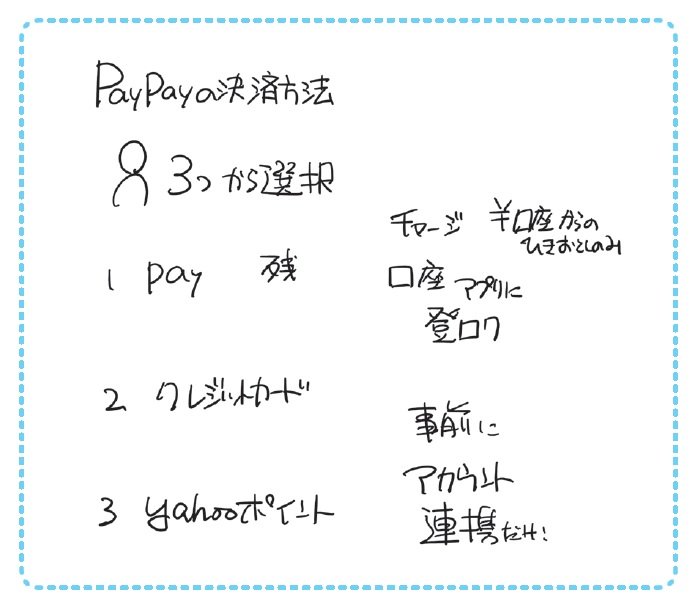 PayPayの決済方法
3つから選択
チャージ ¥口座からの
ひきおとしのみ
1 pay 残 口座 アプリに
登ロク
2 クレジットカード
事前に
アカウント
3 yahooポイント 連携だけ!